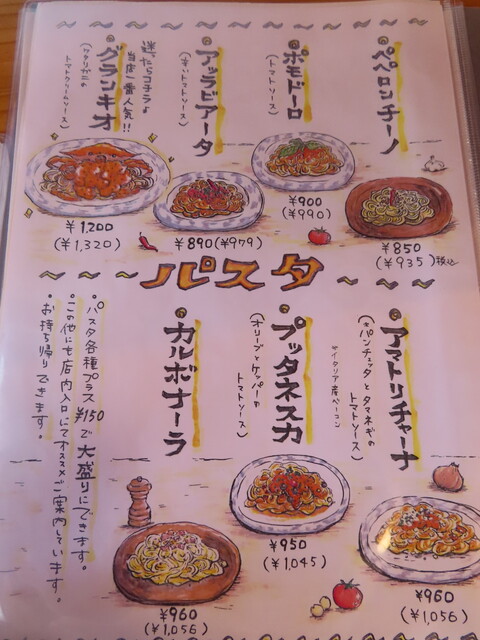 ペペロンチーノ
¥850
(¥935)税込
ポモドーロ
(トマトソース)
¥900
(¥990)
アッラビアータ
(辛いトマトソース)
¥890(¥979)
迷ったらコチラ♪
当店一番人気!!
グランキオ
(ワタリガニの
トマトクリームソース)
¥1,200
(¥1,320)
パスタ
アマトリチャーナ
(*パンチェッタとタマネギの
トマトソース)
*イタリア産ベーコン
¥960
(¥1,056)
プッタネスカ
(オリーブとケッパーの
トマトソース)
¥950
(¥1,045)
カルボナーラ
¥960
(¥1,056)
・パスタ各種プラス¥150で大盛りにできます。
・この他にも店内入口にてオススメご案内しています。
・お持ち帰りできます。